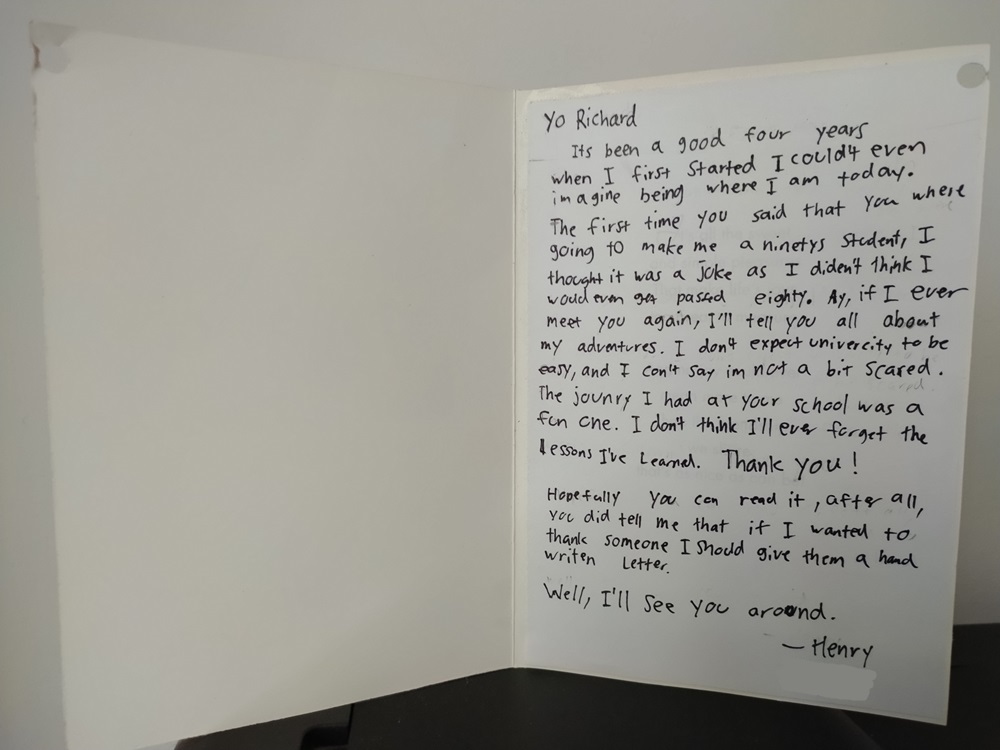 Yo Richard
Its been a good four years
when I first started I could't even
imagine being where I am today.
The first time you said that you where
going to make me a ninetys student, I
thought it was a joke as I diden't think I
would even get passed eighty. Ay, if I ever
meet you again, I'll tell you all about
my adventures. I don't expect univercity to be
easy, and I can't say im not a bit scared.
The jounry I had at your school was a
fun one. I don't think I'll ever forget the
lessons I've learned. Thank you!
Hopefully you can read it, after all,
you did tell me that if I wanted to
thank someone I should give them a hand
writen letter.
Well, I'll see you around.
— Henry